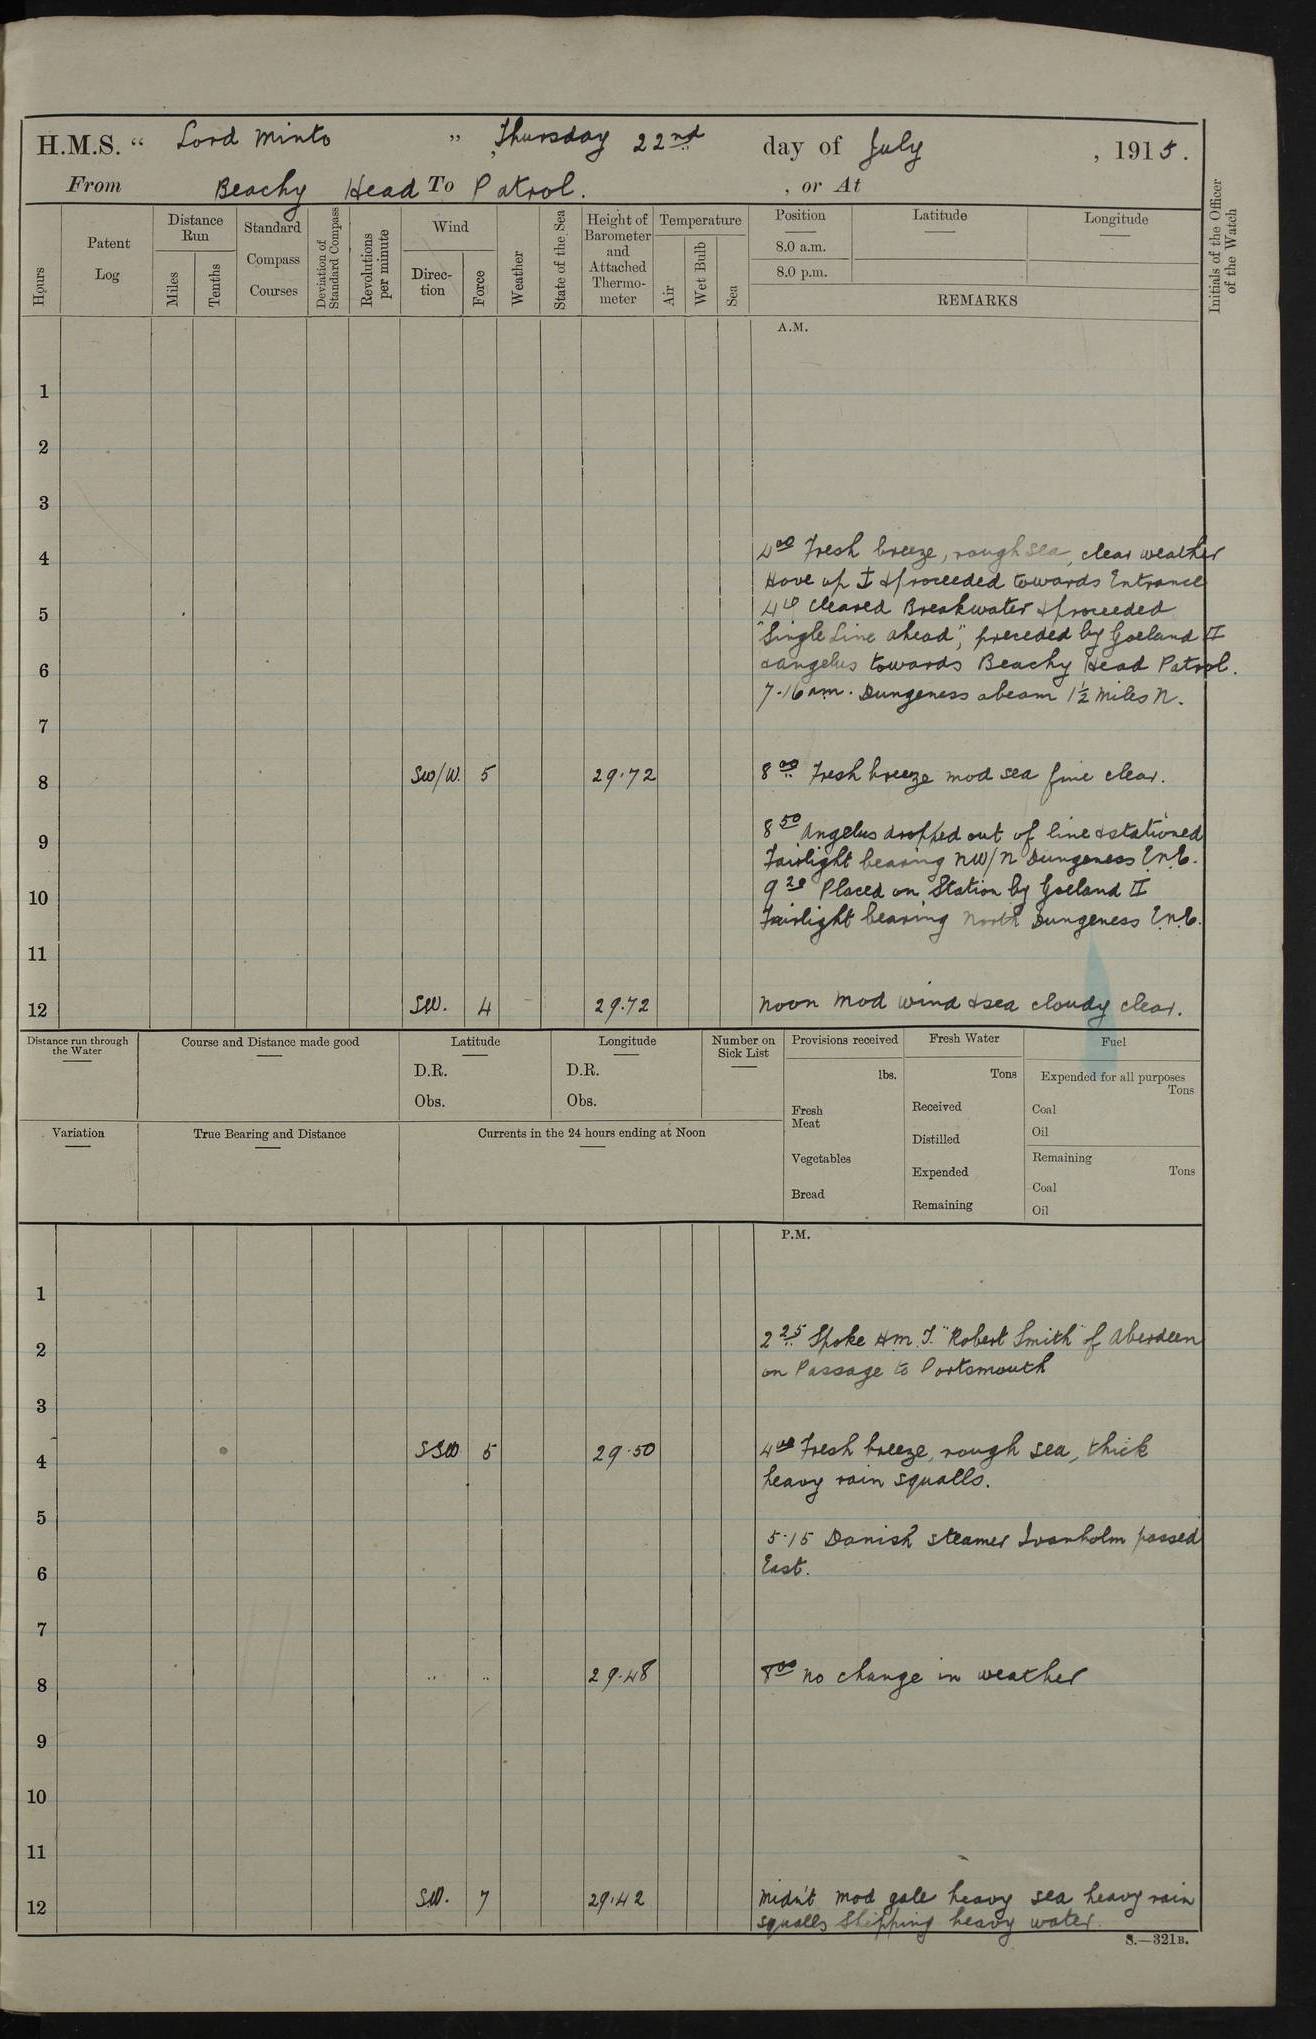 H.M.S. “ Lord Minto ” Thursday 22nd day of July , 1915.
From Beachy Head To Patrol. , or At
Hours
Patent Log
Distance Run
Miles
Tenths
Standard Compass Courses
Deviation of Standard Compass
Revolutions per minute
Wind
Direc-tion
Force
Weather
State of the Sea
Height of Barometer and Attached Thermo-meter
Temperature
Air
Wet Bulb
Sea
Position
8.0 a.m.
8.0 p.m.
Latitude
Longitude
REMARKS
Initials of the Officer of the Watch
A.M.
1
2
3
4 4 00 Fresh breeze, rough sea, clear weather
Hove up ⚓ & proceeded towards Entrance
5 4 10 cleared Breakwater & proceeded
"Single Line ahead", preceded by Goeland II
6 & Angelus towards Beachy Head Patrol.
7.16 am. Dungeness abeam 1½ miles N.
7
8 SW/W. 5 29.72 8 00 Fresh breeze mod sea fine clear.
8 50 Angelus dropped out of line & stationed
9 Fairlight bearing NW/N Dungeness E.N.E.
9 20 Placed on Station by Goeland II
10 Fairlight bearing North Dungeness E.N.E.
11
12 SW. 4 29.72 Noon mod wind & sea cloudy clear.
Distance run through the Water
Course and Distance made good
Latitude
D.R.
Obs.
Longitude
D.R.
Obs.
Number on Sick List
Provisions received
lbs.
Fresh Meat
Vegetables
Bread
Fresh Water
Tons
Received
Distilled
Expended
Remaining
Fuel
Expended for all purposes
Tons
Coal
Oil
Remaining
Tons
Coal
Oil
Variation
True Bearing and Distance
Currents in the 24 hours ending at Noon
P.M.
1
2 2 25 Spoke H.M.T. "Robert Smith" of Aberdeen
on Passage to Portsmouth
3
4 SSW 5 29.50 4 00 Fresh breeze, rough sea, thick
heavy rain squalls.
5
5.15 Danish steamer Ivanholm passed
6 East.
7
8 .. .. 29.48 8 00 No change in weather
9
10
11
12 SW. 7 29.42 Midn't mod gale heavy sea heavy rain
squalls Shipping heavy water.
S.—321B.